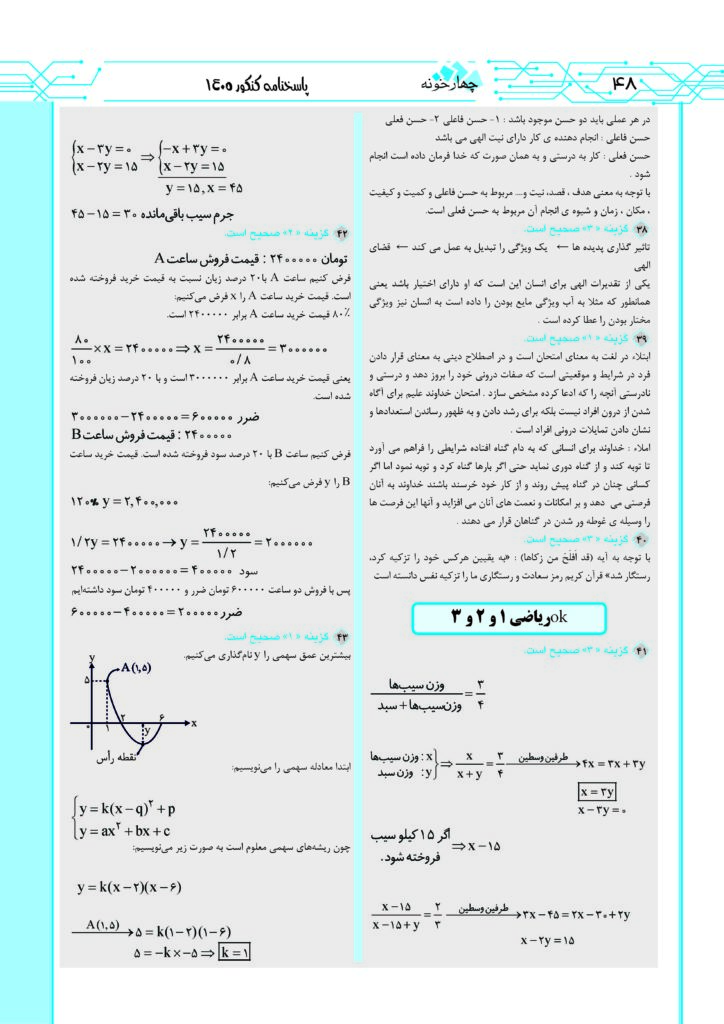 ۴۸
چهارخونه
پاسخنامه کنکور ۱۴۰۵
در هر عملی باید دو حسن موجود باشد : ۱- حسن فاعلی ۲- حسن فعلی
حسن فاعلی : انجام دهنده ی کار دارای نیت الهی می باشد
حسن فعلی : کار به درستی و به همان صورت که خدا فرمان داده است انجام
شود .
با توجه به معنی هدف ، قصد، نیت و... مربوط به حسن فاعلی و کمیت و کیفیت
، مکان ، زمان و شیوه ی انجام آن مربوط به حسن فعلی است.
۳۸ گزینه «۳» صحیح است.
تاثیر گذاری پدیده ها ← یک ویژگی را تبدیل به عمل می کند ← قضای
الهی
یکی از تقدیرات الهی برای انسان این است که او دارای اختیار باشد یعنی
همانطور که مثلا به آب ویژگی مایع بودن را داده است به انسان نیز ویژگی
مختار بودن را عطا کرده است .
۳۹ گزینه «۱» صحیح است.
ابتلاء در لغت به معنای امتحان است و در اصطلاح دینی به معنای قرار دادن
فرد در شرایط و موقعیتی است که صفات درونی خود را بروز دهد و درستی و
نادرستی آنچه را که ادعا کرده مشخص سازد . امتحان خداوند علیم برای آگاه
شدن از درون افراد نیست بلکه برای رشد دادن و به ظهور رساندن استعدادها و
نشان دادن تمایلات درونی افراد است .
املاء : خداوند برای انسانی که به دام گناه افتاده شرایطی را فراهم می آورد
تا توبه کند و از گناه دوری نماید حتی اگر بارها گناه کرد و توبه نمود اما اگر
کسانی چنان در گناه پیش روند و از کار خود خرسند باشند خداوند به آنان
فرصتی می دهد و بر امکانات و نعمت های آنان می افزاید و آنها این فرصت ها
را وسیله ی غوطه ور شدن در گناهان قرار می دهند .
۴۰ گزینه «۳» صحیح است.
با توجه به آیه (قد أفلَحَ من زکاها) : «به یقین هرکس خود را تزکیه کرد،
رستگار شد» قرآن کریم رمز سعادت و رستگاری ما را تزکیه نفس دانسته است
okریاضی ۱ و ۲ و ۳
۴۱ گزینه «۳» صحیح است.
وزن سیب‌ها / وزن‌سیب‌ها + سبد = ۳/۴
x : وزن سیب‌ها
y : وزن سبد
⇒ x/(x+y) = ۳/۴ طرفین وسطین → ۴x = ۳x + ۳y
x = ۳y
x − ۳y = ۰
اگر ۱۵ کیلو سیب
فروخته شود. ⇒ x − ۱۵
(x−۱۵)/(x−۱۵+y) = ۲/۳ طرفین وسطین → ۳x − ۴۵ = ۲x − ۳۰ + ۲y
x − ۲y = ۱۵
{x − ۳y = ۰ ⇒ {−x + ۳y = ۰
{x − ۲y = ۱۵ {x − ۲y = ۱۵
y = ۱۵, x = ۴۵
جرم سیب باقی‌مانده ۳۰ = ۱۵ − ۴۵
۴۲ گزینه «۲» صحیح است.
تومان ۲۴۰۰۰۰۰ : قیمت فروش ساعت A
فرض کنیم ساعت A با۲۰ درصد زیان نسبت به قیمت خرید فروخته شده
است. قیمت خرید ساعت A را x فرض می‌کنیم:
۸۰٪ قیمت خرید ساعت A برابر ۲۴۰۰۰۰۰ است.
۸۰/۱۰۰ × x = ۲۴۰۰۰۰۰ ⇒ x = ۲۴۰۰۰۰۰/۰/۸ = ۳۰۰۰۰۰۰
یعنی قیمت خرید ساعت A برابر ۳۰۰۰۰۰۰ است و با ۲۰ درصد زیان فروخته
شده است.
ضرر ۳۰۰۰۰۰۰ − ۲۴۰۰۰۰۰ = ۶۰۰۰۰۰
۲۴۰۰۰۰۰ : قیمت فروش ساعت B
فرض کنیم ساعت B با ۲۰ درصد سود فروخته شده است. قیمت خرید ساعت
B را y فرض می‌کنیم:
۱۲۰% y = ۲,۴۰۰,۰۰۰
۱/۲y = ۲۴۰۰۰۰۰ → y = ۲۴۰۰۰۰۰/۱/۲ = ۲۰۰۰۰۰۰
سود ۲۴۰۰۰۰۰ − ۲۰۰۰۰۰۰ = ۴۰۰۰۰۰
پس با فروش دو ساعت ۶۰۰۰۰۰ تومان ضرر و ۴۰۰۰۰۰ تومان سود داشته‌ایم
ضرر ۶۰۰۰۰۰ − ۴۰۰۰۰۰ = ۲۰۰۰۰۰
۴۳ گزینه «۱» صحیح است.
بیشترین عمق سهمی را y نام‌گذاری می‌کنیم.
y
A(۱,۵)
۵
۱ ۲ y ۶ x
نقطه رأس
ابتدا معادله سهمی را می‌نویسیم:
{y = k(x − q)² + p
{y = ax² + bx + c
چون ریشه‌های سهمی معلوم است به صورت زیر می‌نویسیم:
y = k(x − ۲)(x − ۶)
A(۱,۵) → ۵ = k(۱ − ۲)(۱ − ۶)
۵ = −k × −۵ ⇒ k = ۱